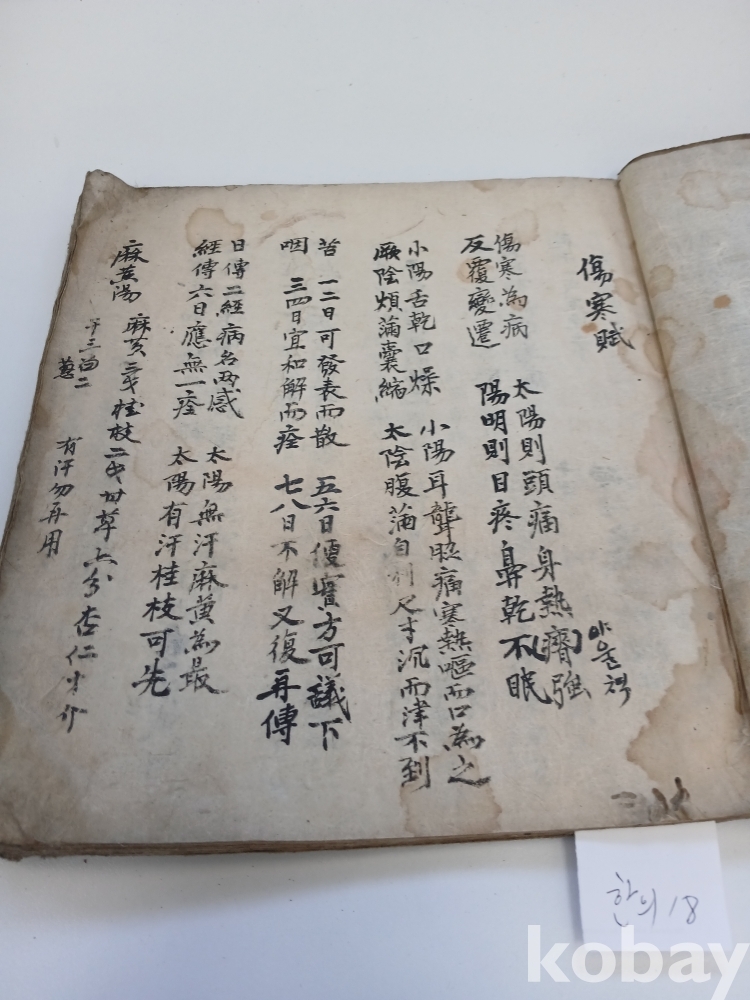 傷寒賦
傷寒為病
反覆變遷
太陽則頭痛身熱(膂)強
陽明則目疼鼻乾不眠
小陽舌乾口燥
厥陰煩滿囊縮
小陽耳聾脇痛寒熱嘔而口為之
太陰腹滿自利尺寸沉而津不到
苦
咽
一二日可發表而散
三四日宜和解而痊
五六日便實方可議下
七八日不解又復再傳
日傳二經病名兩感
經傳六日應無一痊
太陽無汗麻黃為最
太陽有汗桂枝可先
麻黃湯 麻黃三戈桂枝二戈甘草六分杏仁
有汗勿再用
한의 18
kobay